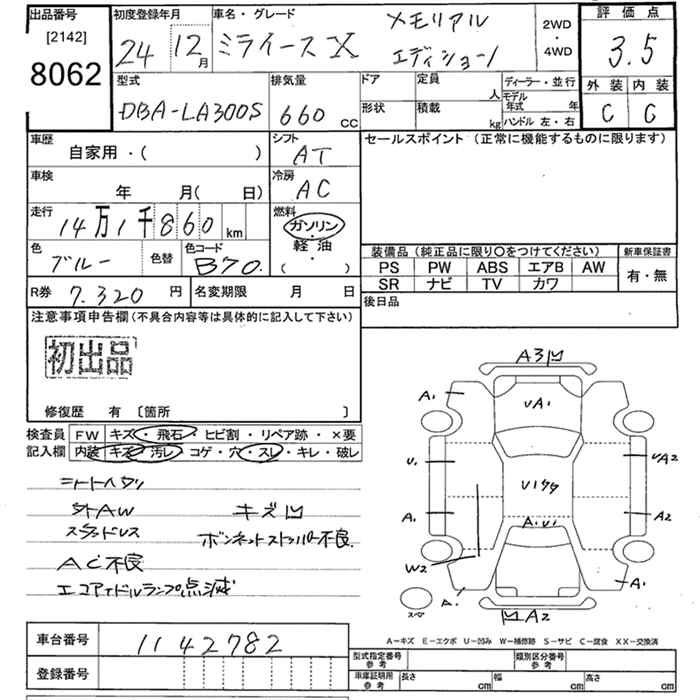 出品番号
[2142]
8062
初度登録年月
24 12月
車名・グレード
ミライース X
メモリアル
エディション
2WD
・
4WD
評価点
3.5
型式
DBA-LA300S
排気量
660 CC
ドア
定員
人
形状
積載
kg
ディーラー・並行
モデル年式 年
ハンドル 左・右
外装 内装
C C
車歴
自家用・( )
シフト
AT
セールスポイント (正常に機能するものに限ります)
車検
年 月( 日)
冷房
AC
走行
14万1千860 km
燃料
ガソリン
・
軽油
・
( )
色
ブルー
色替
色コード
B70.
装備品 (純正品に限り〇をつけてください)
新車保証書
PS PW ABS エアB AW
SR ナビ TV カワ
有・無
R券 7.320 円
名変期限 月 日
後日品
注意事項申告欄 (不具合内容等は具体的に記入して下さい)
初出品
修復歴 有 〔箇所 〕
検査員
記入欄
FW キズ・飛石・ヒビ割・リペア跡・×要
内装 キズ・汚レ・コゲ・穴・スレ・キレ・破レ
シートヘタリ
社AW キズ凹
スタッドレス ボンネットストッパー不良
AC不良
エコアイドルランプ点滅
A3凹
A1
UA1
U1
U1ケケ
UA2
A1
A.U1
A2
W2
A1
A1
スペア
凹A2
A-キズ E-エクボ U-凹み W-補修跡 S-サビ C-腐食 XX-交換済
車台番号
1142782
登録番号
型式指定番号
参考
類別区分番号
参考
車庫証明用
参考
長さ cm
幅 cm
高さ cm